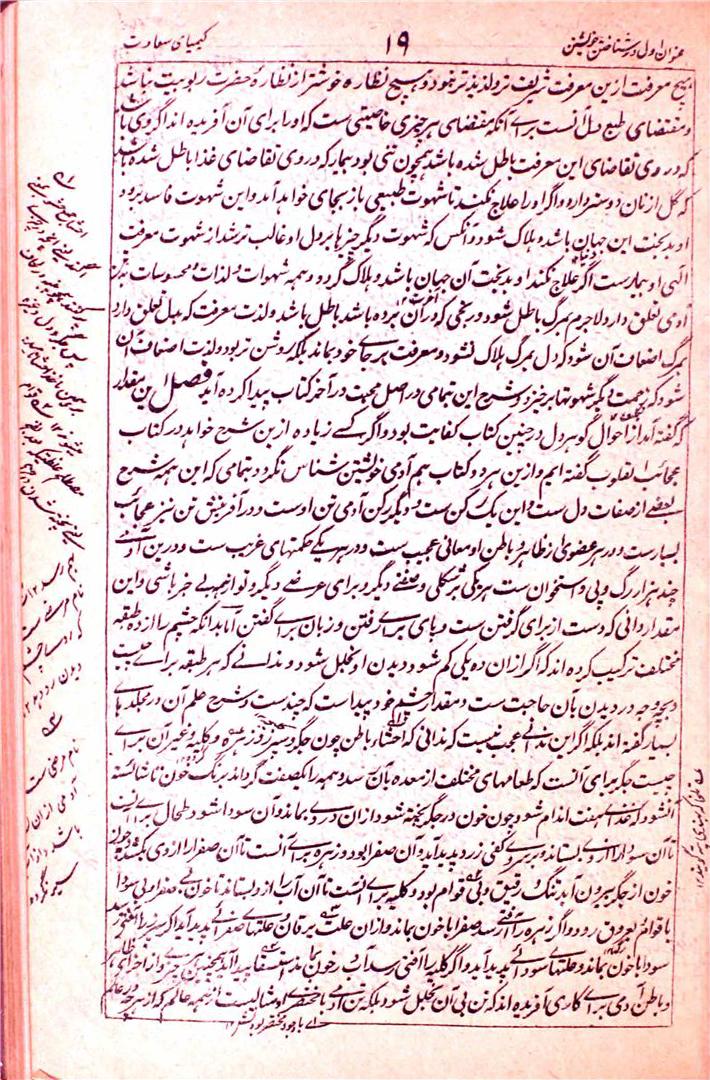 عنوان اول در شناختن خویشتن
۱۹
کیمیای سعادت
هیچ معرفت ازین معرفت شریف تر و لذیذتر نبود و هیچ نظاره خوشتر از نظارهٔ حضرت ربوبیت نباشد
و مقتضای طبع دل آنست برای آنکه مقتضای هر چیزی خاصیتی ست که او را برای آن آفریده اند اگر دلی باشد
که در وی تقاضای این معرفت باطل شده باشد همچون تنی بود بیمار که در وی تقاضای غذا باطل شده باشد
که گل از نان دوستر دارد و اگر او را علاج نکنند تا شهوت طبیعی باز بجای خود آید و این شهوت فاسد برود
او بدبخت این جهان باشد و هلاک شود و آنکس که شهوت دیگر چیزها بر دل او غالب تر شد از شهوت معرفت
الٰهی او بیمارست اگر علاج نکند او بدبخت آن جهان باشد و هلاک گردد و همه شهوات و لذات و محسوسات به تن
آدمی تعلق دارد لاجرم بمرگ باطل شود و رنجی که در آن برده باشد باطل باشد و لذت معرفت که بدل تعلق دارد
بمرگ اضعاف آن شود که دل بمرگ هلاک نشود و معرفت بر جای خود بماند بلکه روشن تر بود و لذت اضعاف آن
شود که زحمت دیگر شهوتها برخیزد و شرح این تمامی در اصل محبت در آخر کتاب پیدا کرده آید فصل این مقدار
که گفته آمد از احوال گوهر دل در چنین کتاب کفایت بود و اگر کسے زیاده ازین شرح خواهد در کتاب
عجائب القلوب گفته ایم و ازین هر دو کتاب هم آدمی خویشتن شناس نگردد بتمامی که این همه شرح
بعضے از صفات دل ست و این یک رکن ست و دیگر رکن آدمی تن اوست و در آفرینش تن نیز عجائب
بسیارست و در هر عضوی از ظاهر و باطن او معانی عجیب ست و در هر یکے حکمتهای غریب ست و در تن آدمے
چند هزار رگ و پی و استخوان ست هر یکی بر شکلی و صفتے دیگر و برای غرضے دیگر و تو از همه بے خبر باشی و این
مقدار دانی که دست از برای گرفتن ست و پای برای رفتن و زبان برای گفتن اما بدانکه چشم را از ده طبقه
مختلف ترکیب کرده اند که اگر از آن ده یکی کم شود دیدن او بخلل شود و ندانے که هر طبقه برای چیست
و بچه وجه در دیدن بآن حاجت ست و مقدار چشم خود پیداست که چندست و شرح علم آن در مجلدهای
بسیار گفته اند بلکه اگر این ندانے عجب نیست که ندانی که احشاء باطن چون جگر و سپرز و زهره و کلیه و غیر آن برای
چیست جگر برای آنست که طعامهای مختلف از معده بآن رسد و همه را یکصفت گرداند برنگ خون تا شائسته
آن شود که غذای هفت اندام شود چون خون در جگر پخته شود از آن دردی بماند و آن سودا شود طحال برای آنست
تا آن سودا را ازوی بستاند و بر سر وی کفی زرد پدید آید و آن صفرا بود و زهره برای آنست تا آن صفرا را ازوی بکشد و چون
خون از جگر بیرون آید تنگ و رقیق و بی قوام بود و کلیه برای آنست تا آن آب را از و بستاند تا خون بے صفرا و بی سودا
با قوام بعروق رود و اگر زهره را آفتے رسد صفرا با خون بماند و از آن علت یرقان و علتهای صفرائے پدید آید و اگر سپرز را آفتے رسد
سودا با خون بماند و علتهای سودائے پدید آید و اگر کلیه را آفتی رسد آب در خون بماند استسقا پدید آید همچنین هر جزوی از اجزای ظاهر
و باطن آدمی برای کاری آفریده اند که تن بی آن بخلل شود بلکه تن آدمی با مختصری او مثالیست از همه عالم که از هر چه در عالم